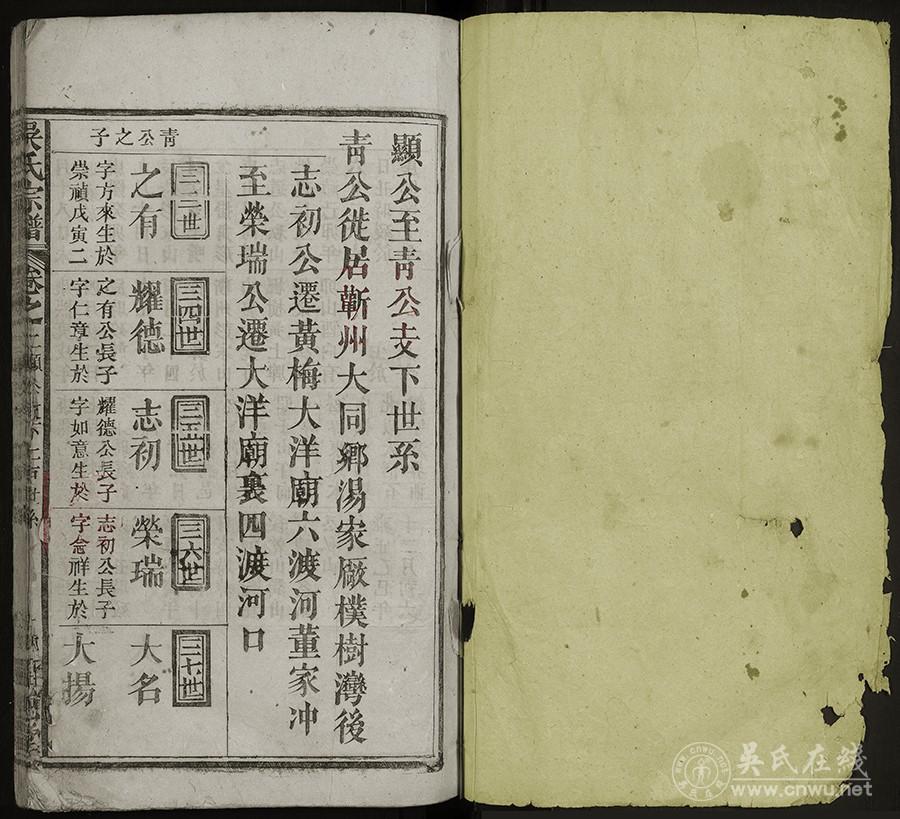 顯公至青公支下世系
青公徙居蘄州大同鄉湯家厰樸樹灣後
志初公遷黃梅大洋廟六渡河董家冲
至榮瑞公遷大洋廟裏四渡河口
青公之子
三三世
之有
字方來生於
崇禎戊寅二
三四世
耀德
之有公長子
字仁章生於
三五世
志初
耀德公長子
字如意生於
三六世
榮瑞
志初公長子
字念祥生於
三七世
大名
大揚
吳氏宗譜
卷之
吳氏在线
www.cnwu.net